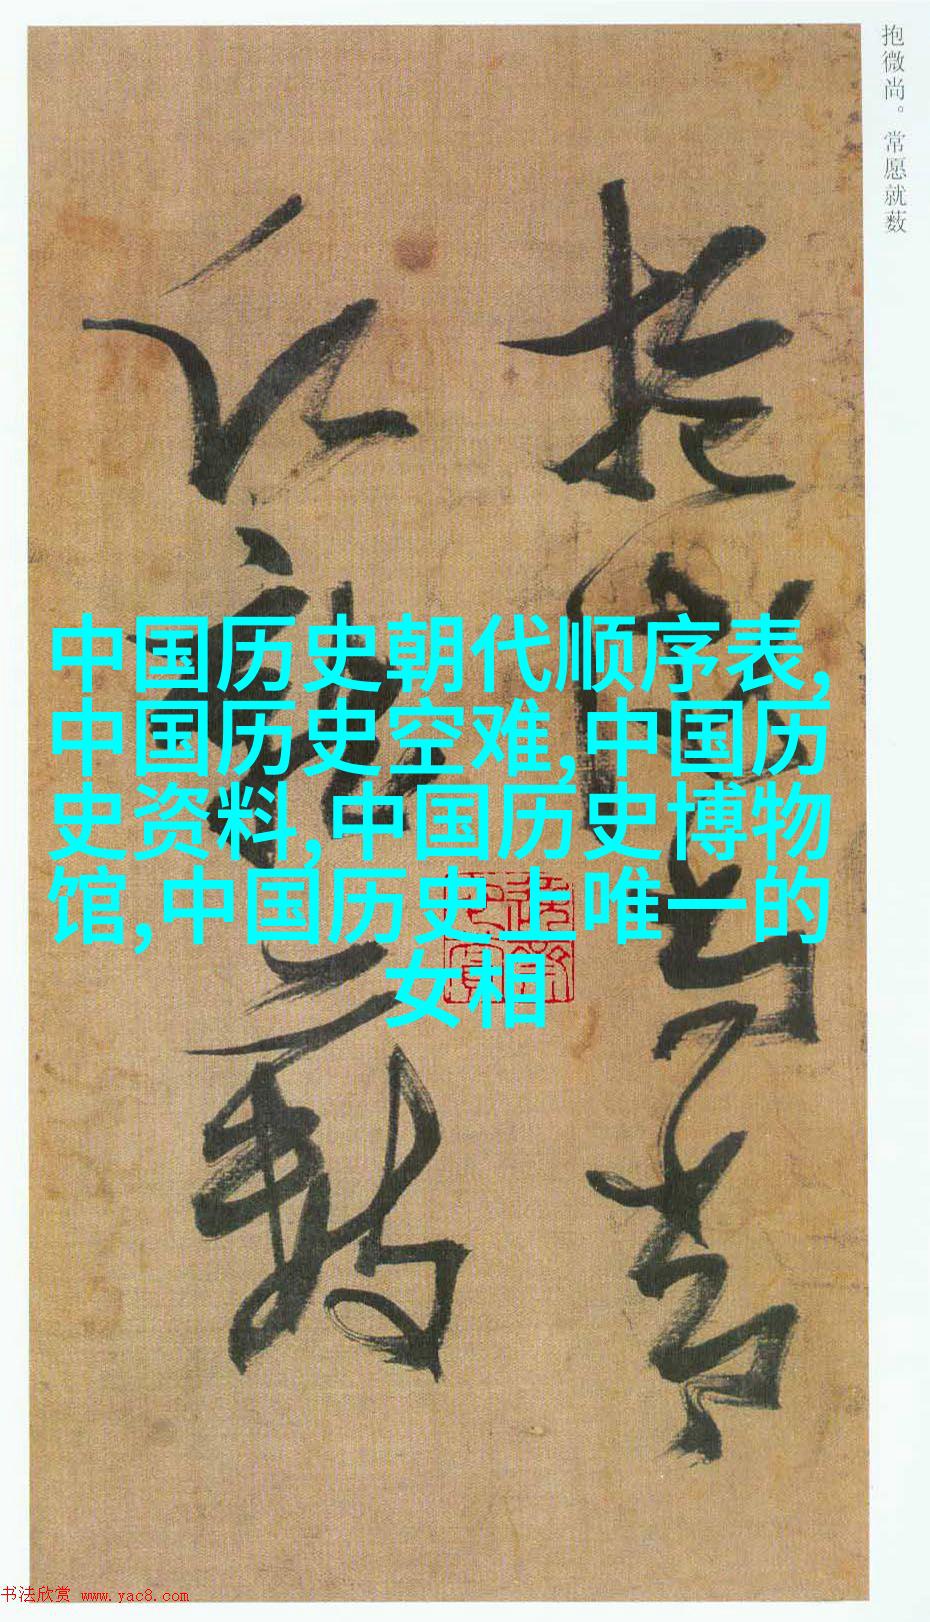 抱微尚。常愿就薮
抱微尚常
願就藪
中国历史朝代顺序表,
中国历史空难,中国历
史资料,中国历史博物
馆,中国历史上唯一的
女相
书法欣赏 www.yac8.com